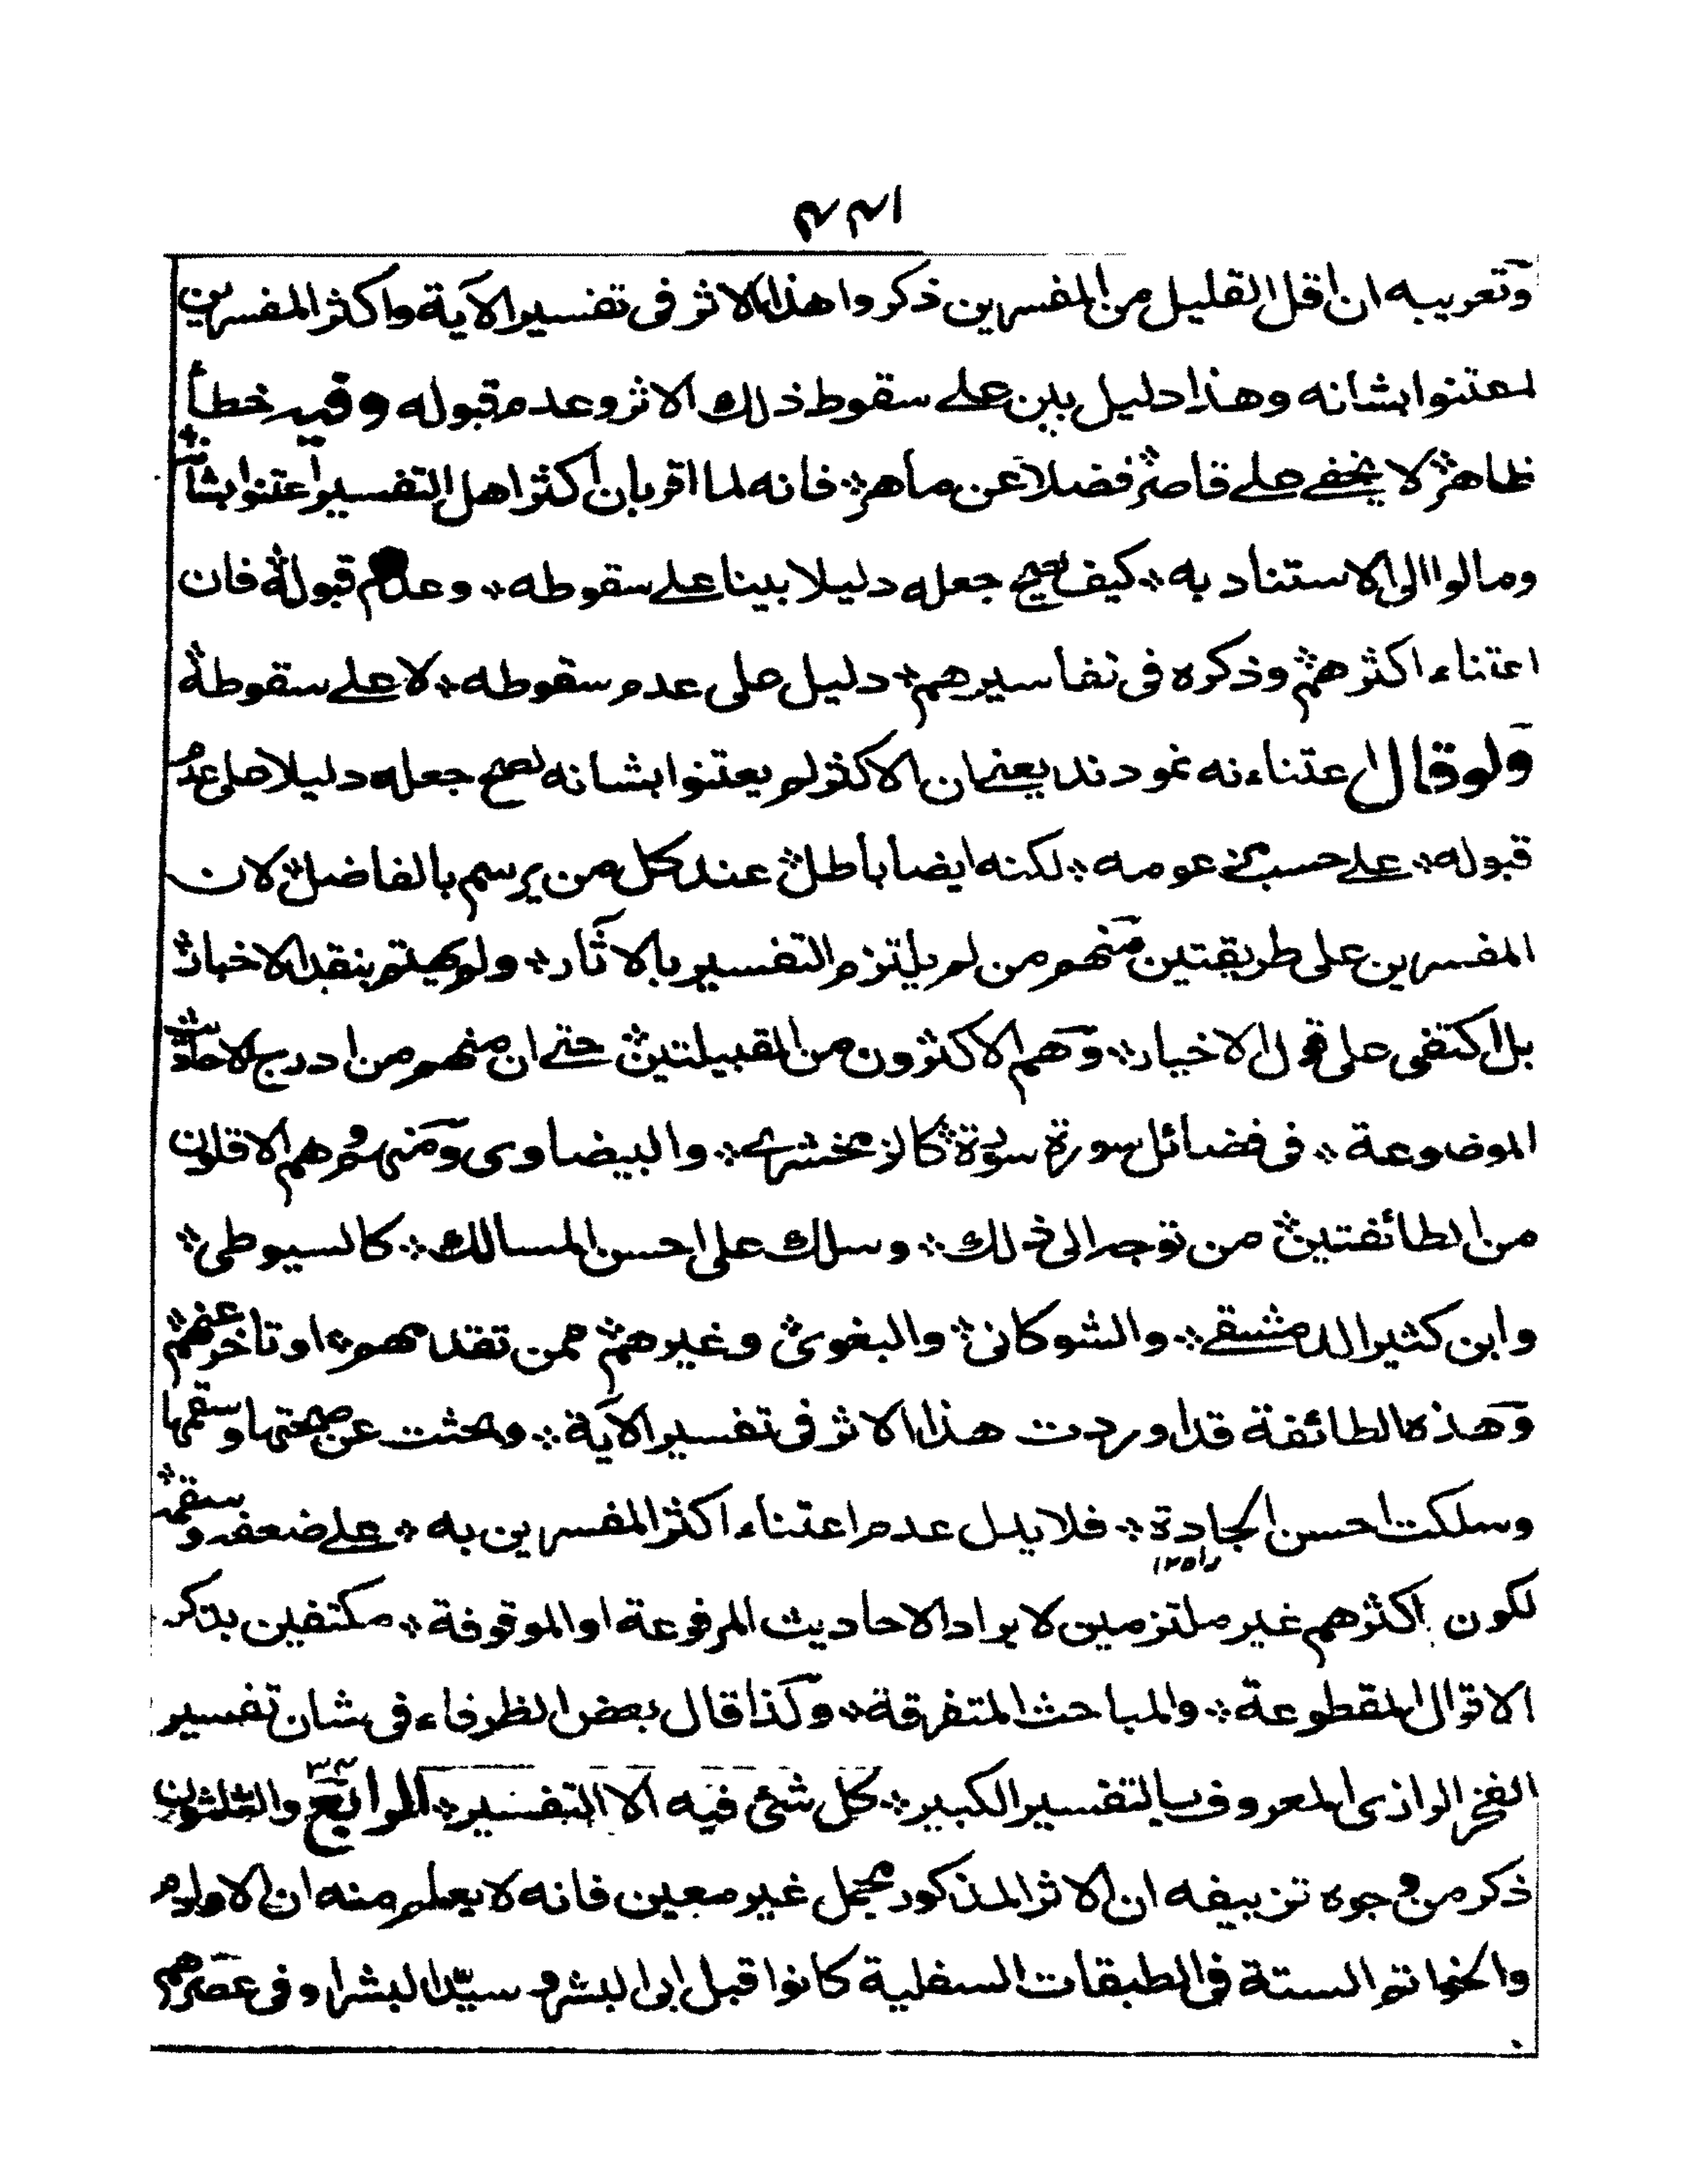 ١٤٤
وتعريبه ان اقل القليل من المفسرين ذكروا هذا الاثر فى تفسير الآية واكثر المفسرين
اعتنوا بشانه وهذا دليل بين على سقوط ذلك الاثر وعدم قبوله وفيه خطأ
ظاهر لا يخفى على قاصر فضلا عن ماهر فانه لما اقر بان اكثر اهل التفسير اعتنوا بشانه
ومالوا الى الاستناد به كيف يصح جعله دليلا بينا على سقوطه وعدم قبوله فان
اعتناء اكثرهم وذكره فى تفاسيرهم دليل على عدم سقوطه لا على سقوطه
ولو قال اعتناء نه نمودند يعنى ان الاكثر لم يعتنوا بشانه لصح جعله دليلا على عدم
قبوله على حسب مزعومه لكنه ايضا باطل عند كل من يرسم بالفاضل لان
المفسرين على طريقتين منهم من لم يلتزم التفسير بالآثار ولم يهتم بنقد الاخبار
بل اكتفى على قول الاخيار وهم الاكثرون من القبيلتين حتى ان منهم من ادرج الاحاديث
الموضوعة فى فضائل سورة سورة كالزمخشرى والبيضاوى ومنهم وهم الاقلون
من الطائفتين من توجه الى ذلك وسلك على احسن المسالك كالسيوطى
وابن كثير الدمشقى والشوكانى والبغوى وغيرهم ممن تقدمهم او تاخر عنهم
وهذه الطائفة قد اوردت هذا الاثر فى تفسير الآية وبحثت عن صحتها وسقمها
وسلكت احسن الجادة فلا يدل عدم اعتناء اكثر المفسرين به على ضعفه وسقمه
لكون اكثرهم غير ملتزمين لايراد الاحاديث المرفوعة او الموقوفة مكتفين بذكر
الاقوال المقطوعة والمباحث المتفرقة وكذا قال بعض الظرفاء فى شان تفسير
الفخر الرازى المعروف بالتفسير الكبير كل شئ فيه الا التفسير الرابع والثلثون
ذكر من وجوه تزييفه ان الاثر المذكور مجمل غير معين فانه لا يعلم منه ان الاوادم
والخواتم الستة فى الطبقات السفلية كانوا قبل ابى البشر و سيد البشر او فى عصرهم